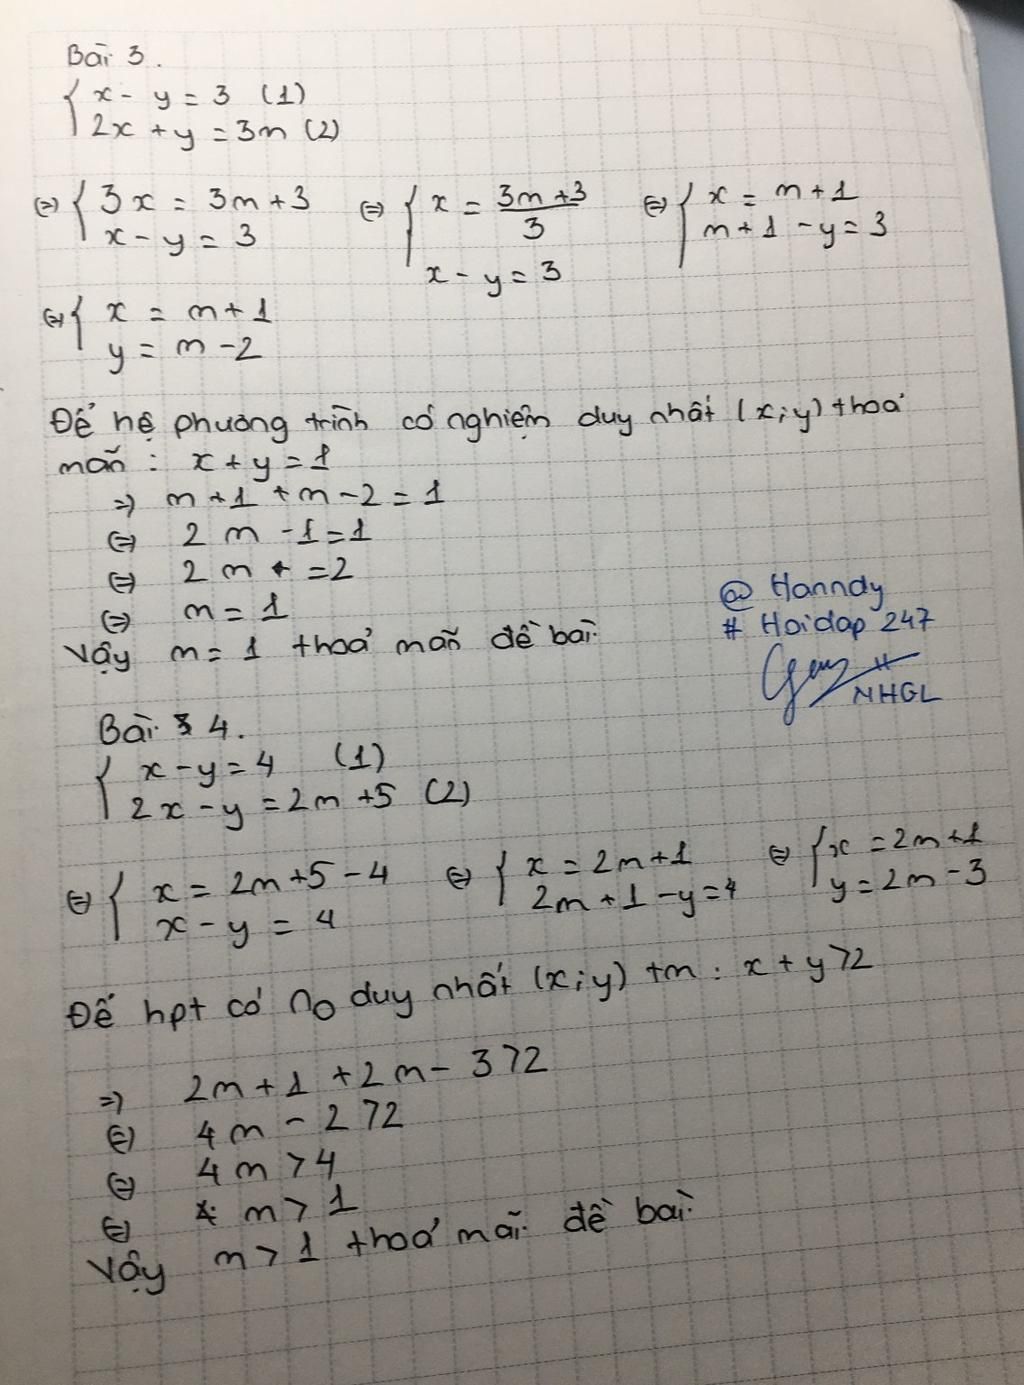 Bài 3.
{ x - y = 3 (1)
2x + y = 3m (2)
(=) { 3x = 3m + 3 (=) { x = 3m + 3 / 3 (=) { x = m + 1
x - y = 3 x - y = 3 m + 1 - y = 3
(=) { x = m + 1
y = m - 2
Để hệ phương trình có nghiệm duy nhất (x; y) thoả
mãn : x + y = 1
=) m + 1 + m - 2 = 1
(=) 2m - 1 = 1
(=) 2m = 2
(=) m = 1
Vậy m = 1 thoả mãn đề bài.
@ Hanndy
# Hoidap 247
NHGL
Bài 4.
{ x - y = 4 (1)
2x - y = 2m + 5 (2)
(=) { x = 2m + 5 - 4 (=) { x = 2m + 1 (=) { x = 2m + 1
x - y = 4 2m + 1 - y = 4 y = 2m - 3
Để hpt có no duy nhất (x; y) tm : x + y > 2
=) 2m + 1 + 2m - 3 > 2
(=) 4m - 2 > 2
(=) 4m > 4
(=) m > 1
Vậy m > 1 thoả mãn đề bài.